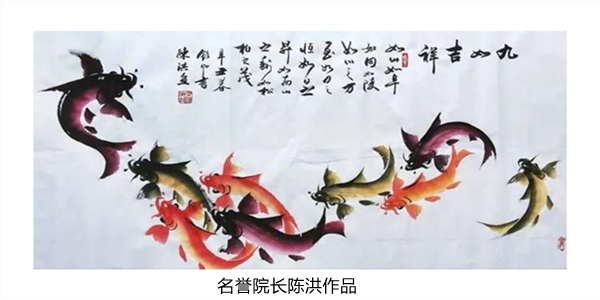 九如吉祥
如山如阜
如冈如陵
如川之方
至如月之
恒如日之
升如南山
之寿如松
柏之茂
辛丑春
陈洪
名誉院长陈洪作品